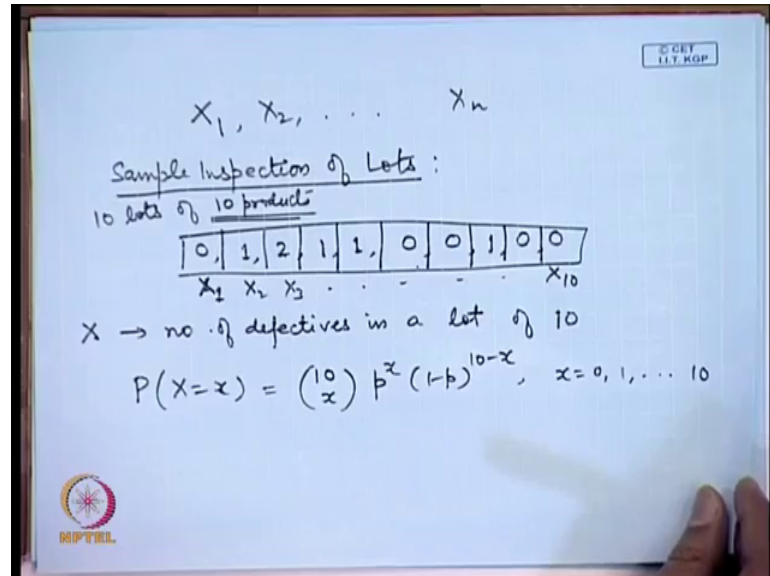 © CET
I.I.T. KGP
X₁, X₂, . . . Xₙ
Sample Inspection of Lots :
10 lots of 10 products
0, 1, 2, 1, 1, 0, 0, 1, 0, 0
X₁ X₂ X₃ . . - - . X₁₀
X → no. of defectives in a lot of 10
P(X=x) = (10 x) p^x (1-p)^{10-x}, x=0, 1, ... 10
NPTEL